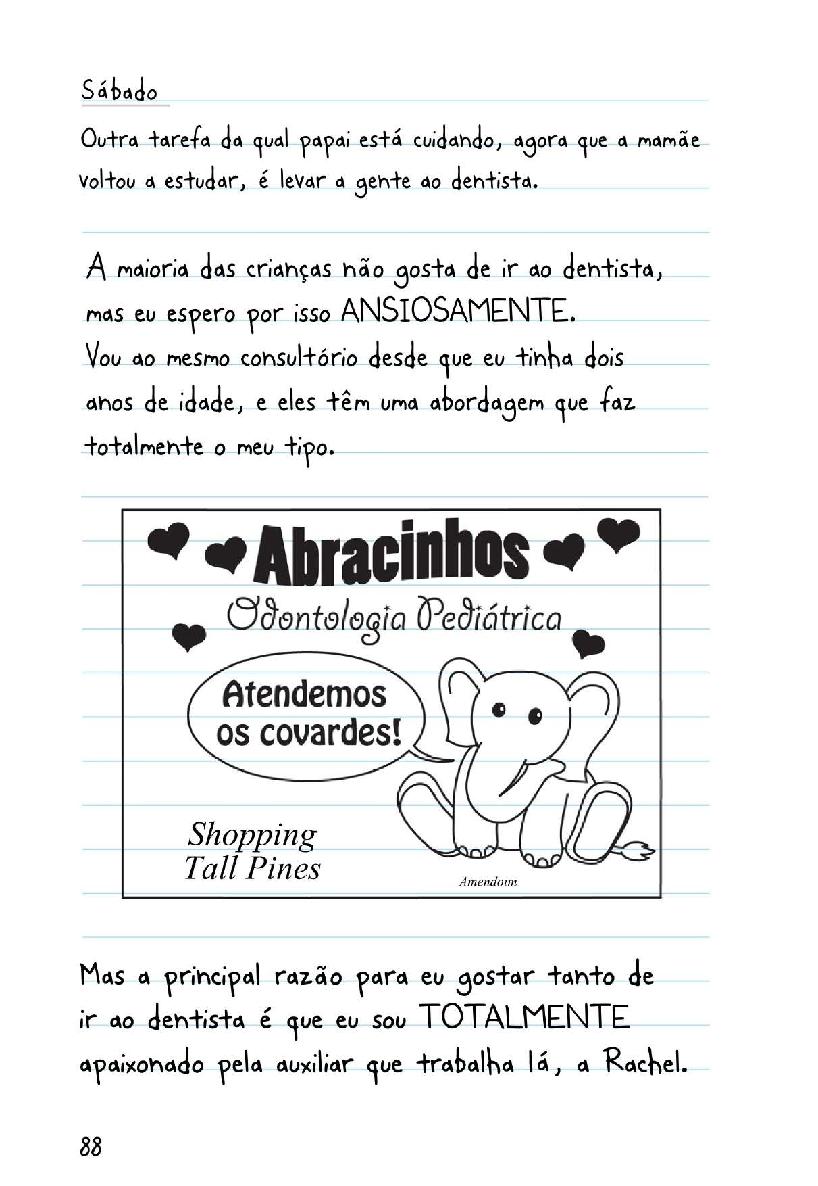 Sábado
Outra tarefa da qual papai está cuidando, agora que a mamãe
voltou a estudar, é levar a gente ao dentista.
A maioria das crianças não gosta de ir ao dentista,
mas eu espero por isso ANSIOSAMENTE.
Vou ao mesmo consultório desde que eu tinha dois
anos de idade, e eles têm uma abordagem que faz
totalmente o meu tipo.
Abracinhos
Odontologia Pediátrica
Atendemos
os covardes!
Shopping
Tall Pines
Amendoim
Mas a principal razão para eu gostar tanto de
ir ao dentista é que eu sou TOTALMENTE
apaixonado pela auxiliar que trabalha lá, a Rachel.
88